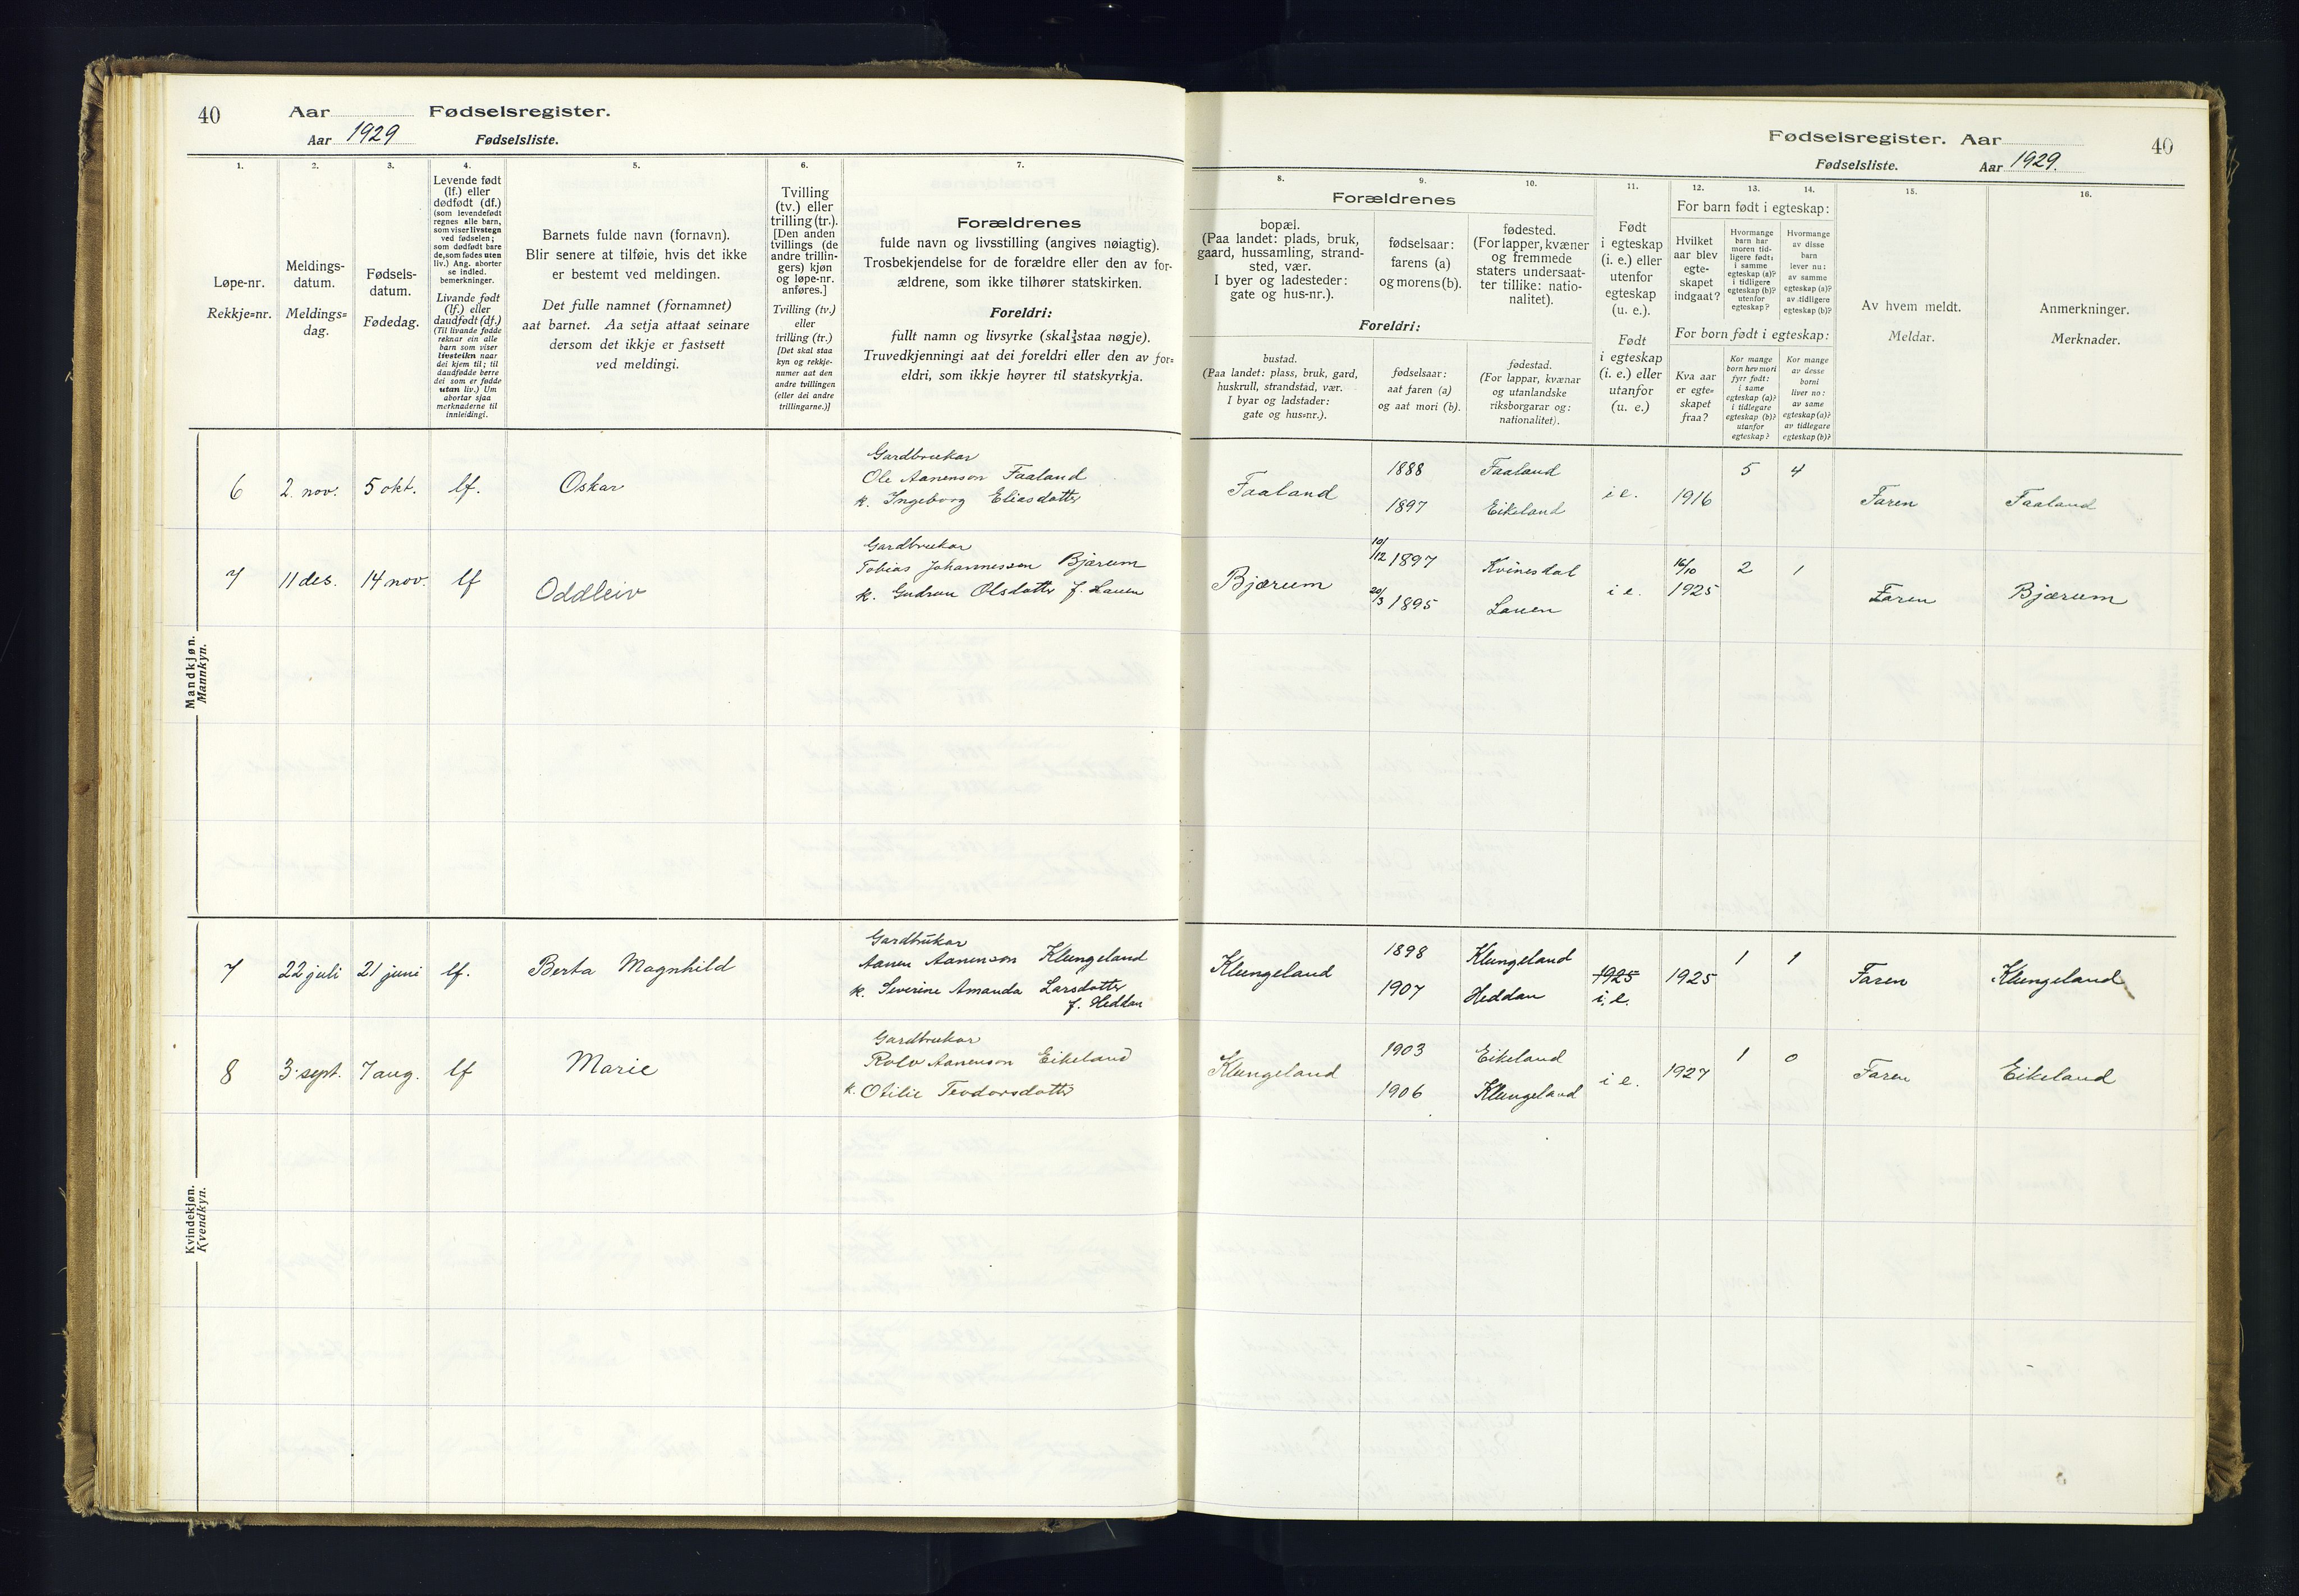 40
Aar
Fødselsregister.
Aar 1929
Fødselsliste.
1.
Løpe-nr.
Rekkje=nr.
2.
Meldings-
datum.
Meldings=
dag.
3.
Fødsels-
datum.
Fødedag.
4.
Levende født
(lf.) eller
dødfødt (df.)
(som levendefødt
regnes alle barn,
som viser livstegn
ved fødselen;
som dødfødt bare
de, som fødes uten
liv.) Ang. aborter
se indled.
bemerkninger.
Livande født
(lf.) eller
daudfødt (df.)
(Til livande fødde
reknar ein alle
barn som viser
livsteikn naar
dei kjem til; til
daudfødde berre
dei som er fødde
utan liv.) Um
abortar sjaa
merknaderne til
innleidingi.
5.
Barnets fulde navn (fornavn).
Blir senere at tilføie, hvis det ikke
er bestemt ved meldingen.
Det fulle namnet (fornamnet)
aat barnet. Aa setja attaat seinare
dersom det ikkje er fastsett
ved meldingi.
6.
Tvilling
(tv.) eller
trilling (tr.).
[Den anden
tvillings (de
andre trillin-
gers) kjøn
og løpe-nr.
anføres.]
Tvilling (tv.)
eller
trilling (tr.)
[Det skal staa
kyn og rekkje-
numer aat den
andre tvillingen
(eller dei andre
trillingarne.)]
7.
Forældrenes
fulde navn og livsstilling (angives nøiagtig).
Trosbekjendelse for de forældre eller den av for-
ældrene, som ikke tilhører statskirken.
Foreldri:
fullt namn og livsyrke (skal staa nøgje).
Truvedkjenningi aat dei foreldri eller den av for=
eldri, som ikkje høyrer til statskyrkja.
Mandkjøn.
Mannkyn.
6 2. nov. 5 okt. lf. Oskar
Gardbrukar
Ole Aanenson Faaland
k. Ingeborg Eliasdotter
7 11 des. 14 nov. lf Oddleiv
Gardbrukar
Tobias Johannessen Bjærum
k. Gudrun Olsdotter f. Lauen
Kvindekjøn.
Kvendkyn.
7 22 juli 21 juni lf. Berta Magnhild
Gardbrukar
Aanen Aanenson Klungeland
k. Severine Amanda Larsdotter
f. Heddan
8 3. sept. 7 aug. lf Marie
Gardbrukar
Rolv Aanenson Eikeland
k. Otilie Teodorsdotter
Fødselsregister. Aar
40
Fødselsliste.
Aar 1929.
8.
9.
10.
Forældrenes
bopæl.
(Paa landet: plads, bruk,
gaard, hussamling, strand-
sted, vær.
I byer og ladesteder:
gate og hus-nr.).
fødselsaar:
farens (a)
og morens (b).
fødested.
(For lapper, kvæner
og fremmede
staters undersaat-
ter tillike: natio-
nalitet).
Foreldri:
bustad.
(Paa landet: plass, bruk, gard,
huskrull, strandstad, vær.
I byar og ladstader:
gate og hus=nr.).
fødselsaar:
aat faren (a)
og aat mori (b).
fødestad.
(For lappar, kvænar
og utanlandske
riksborgarar og:
nationalitet).
11.
Født
i egteskap
(i. e.) eller
utenfor
egteskap
(u. e.).
Født
i egteskap
(i. e.) eller
utanfor
(u. e.)
12.
13.
14.
For barn født i egteskap:
Hvilket
aar blev
egte-
skapet
indgaat?
Hvormange
barn har
moren tid-
ligere født:
i samme
egteskap (a)?
i tidligere
egteskap (b)?
utenfor
egteskap?
Hvormange
av disse
barn
lever nu:
av samme
egteskap (a)?
av tidligere
egteskap (b)?
For born født i egteskap:
Kva aar
er egte=
skapet
fraa?
Kor mange
born hev mori
fyrr født:
i same
egteskap (a)?
i tidlegare
egteskap (b)?
utanfor
egteskap?
Kor mange
av desse
borni
liver no:
av same
egteskap (a)?
av tidlegare
egteskap (b)?
15.
Av hvem meldt.
Meldar.
16.
Anmerkninger.
Merknader.
Faaland 1888 Faaland i e. 1916 5 4 Faren Faaland
1897 Eikeland
Bjærum 10/12 1897 Kvinesdal i e. 16/10 1925 2 1 Faren Bjærum
20/3 1895 Lauen
Klungeland 1898 Klungeland 1925 1925 1 1 Faren Klungeland
1907 Heddan i. e.
Klungeland 1903 Eikeland i e. 1927 1 0 Faren Eikeland
1906 Klungeland